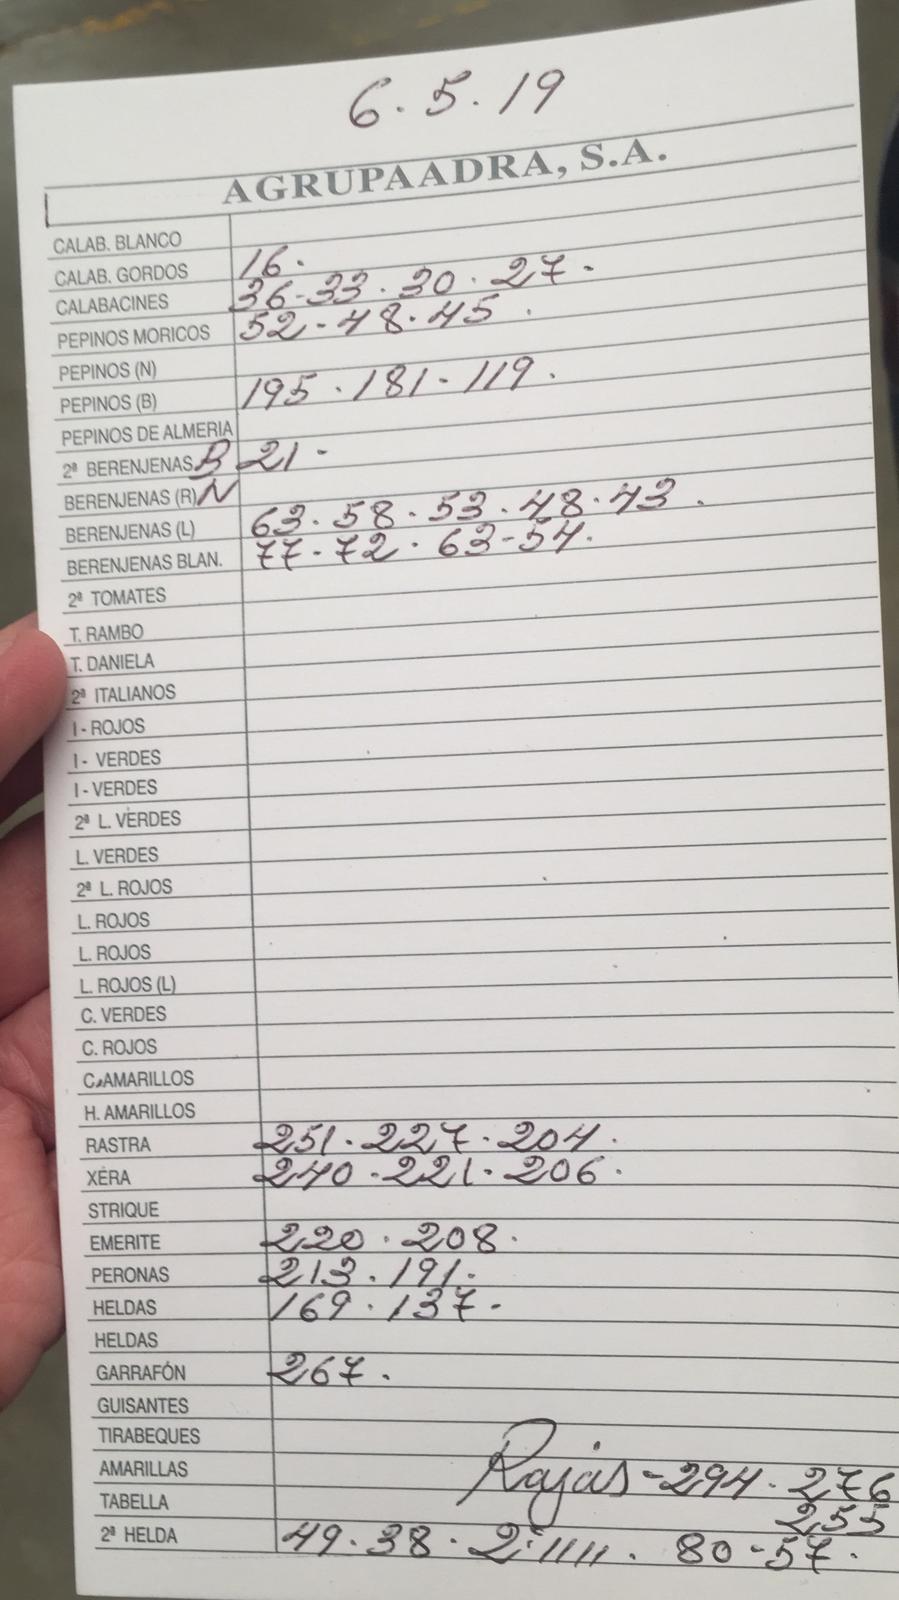 6.5.19
AGRUPAADRA, S.A.
CALAB. BLANCO
CALAB. GORDOS 16.
CALABACINES 36-33.30.27.
PEPINOS MORICOS 52-48.45.
PEPINOS (N)
PEPINOS (B) 195.181-119.
PEPINOS DE ALMERIA
2ª BERENJENAS B 21-
BERENJENAS (R) N
BERENJENAS (L) 63.58.53.48.43.
BERENJENAS BLAN. 77-72.63-54.
2ª TOMATES
T. RAMBO
T. DANIELA
2ª ITALIANOS
I - ROJOS
I - VERDES
I - VERDES
2ª L. VERDES
L. VERDES
2ª L. ROJOS
L. ROJOS
L. ROJOS
L. ROJOS (L)
C. VERDES
C. ROJOS
C. AMARILLOS
H. AMARILLOS
RASTRA 251.227.204.
XERA 240.221.206.
STRIQUE
EMERITE 220.208.
PERONAS 213.191.
HELDAS 169.137-
HELDAS
GARRAFÓN 267.
GUISANTES
TIRABEQUES
AMARILLAS Rajas-294.276
TABELLA 255
2ª HELDA 49.38. 80-57.